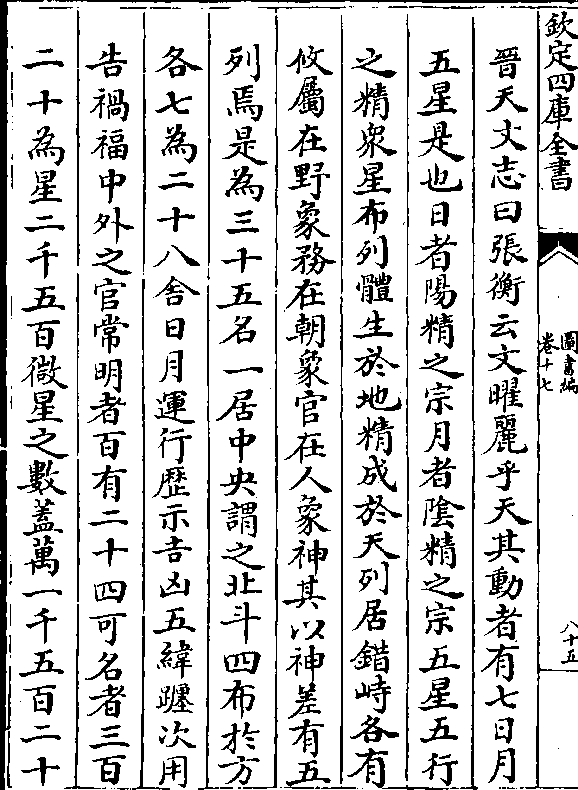 欽定四庫全書
圖書編
卷十七
八十五
晉天文志曰張衡云文曜麗乎天其動者有七日月
五星是也日者陽精之宗月者陰精之宗五星五行
之精衆星布列體生於地精成於天列居錯峙各有
攸屬在野象務在朝象官在人象神其以神差有五
列焉是為三十五名一居中央謂之北斗四布於方
各七為二十八舍日月運行歴示吉凶五緯躔次用
告禍福中外之官常明者百有二十四可名者三百
二十為星二千五百微星之數蓋萬一千五百二十